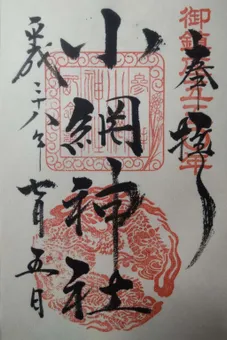 御鎮座
奉拝
小網神社
平成二十八年七月五日